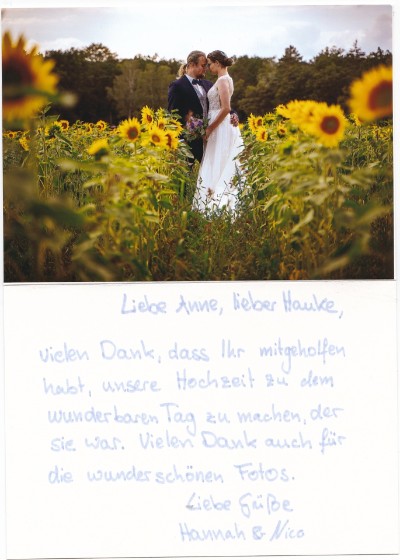 Liebe Anne, lieber Hauke,
vielen Dank, dass Ihr mitgeholfen
habt, unsere Hochzeit zu dem
wunderbaren Tag zu machen, der
sie war. Vielen Dank auch für
die wunderschönen Fotos.
Liebe Grüße
Hannah & Nico